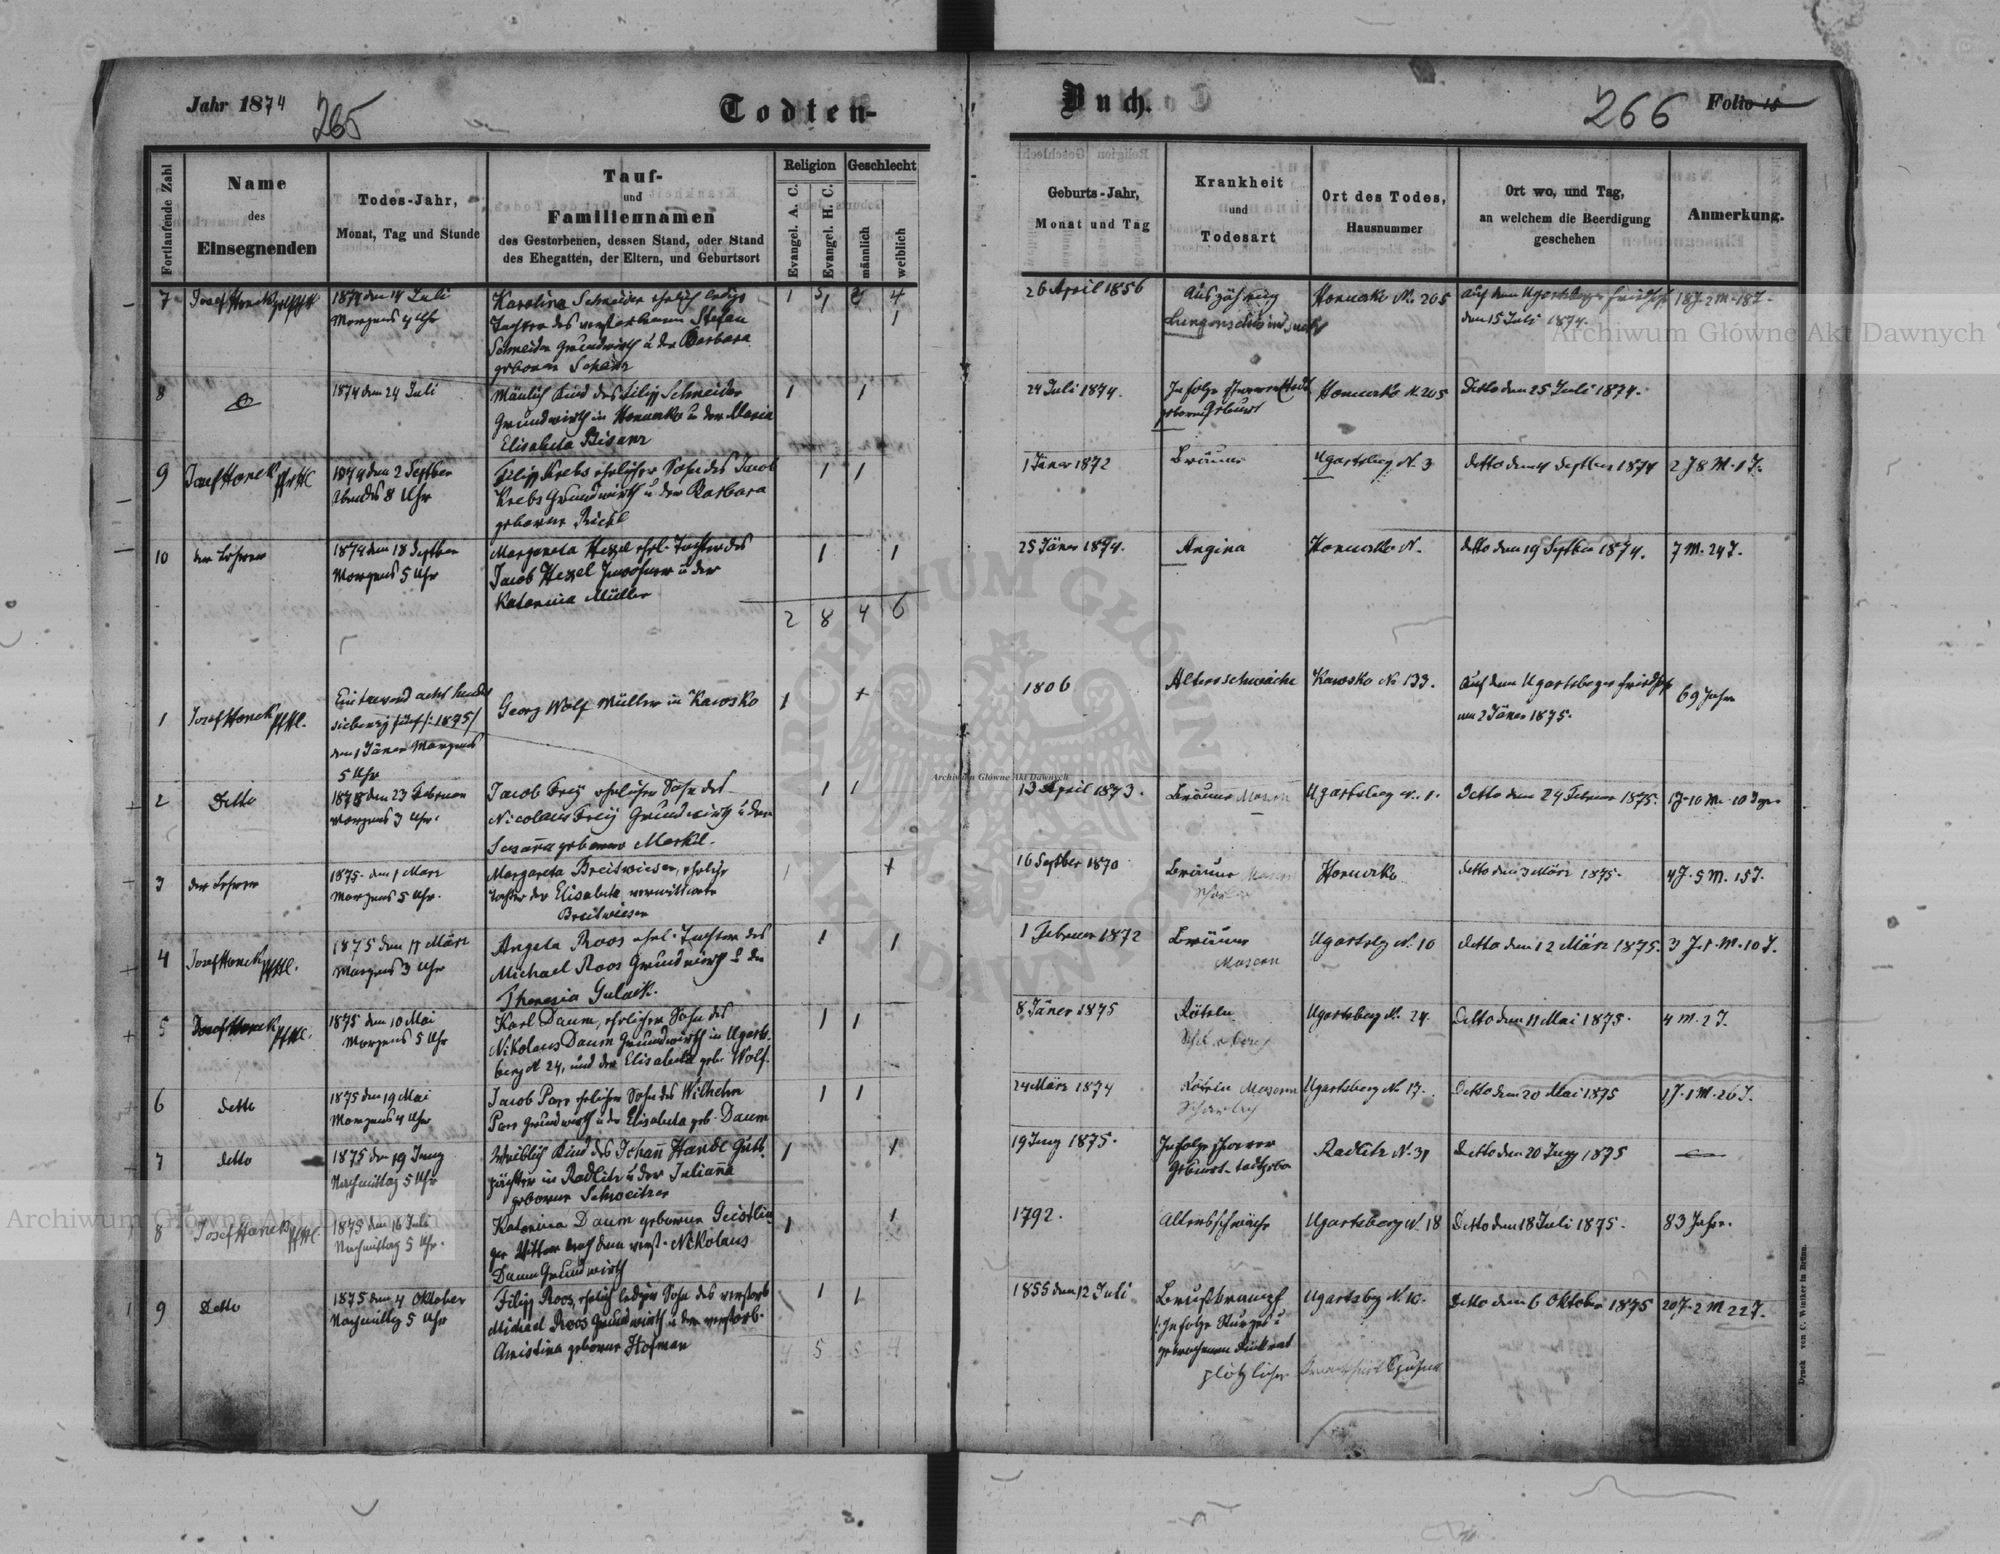 Jahr 1874
265
Todten-
Buch.
266
Folio 15
Fortlaufende Zahl
Name
des
Einsegnenden
Todes-Jahr,
Monat, Tag und Stunde
Tauf-
und
Familiennamen
des Gestorbenen, dessen Stand, oder Stand
des Ehegatten, der Eltern, und Geburtsort
Religion
Evangel. A. C.
Evangel. H. C.
Geschlecht
männlich
weiblich
Geburts-Jahr,
Monat und Tag
Krankheit
und
Todesart
Ort des Todes,
Hausnummer
Ort wo, und Tag,
an welchem die Beerdigung
geschehen
Anmerkung.
7
Josef Honek
1874 den 14 Juli
Morgens 4 Uhr
Karolina Schneider ehelich ledige
Tochter des verstorbenen Stefan
Schneider Grundwirth u der Barbara
geborne Schanz
26 April 1856
Auszährung
Hanunka No. 205
auf dem Ugartsberger Friedhof
den 15 Juli 1874.
18 J. 2 M. 18 T.
8
1874 den 24 Juli
Mänlich Kind des Filipp Schneider
Grundwirth in Hanunka u der Maria
Elisabeta Bisanz
1 1
24 Juli 1874.
Infolge
Geburt
Hanunka N. 205
Detto den 25 Juli 1874.
9
Josef Honek
1874 den 2 Septber
Abends 8 Uhr
Filipp Krebs ehelicher Sohn des Jacob
Krebs Grundwirth u der Barbara
geborne
1 1
1 Jäner 1872
Bräune
Ugartsberg N. 3
detto den 4 Septber 1874
2 J 8 M. 1 T.
10
der Lehrer
1874 den 18 Septber
Morgens 5 Uhr
Margareta Hexel ehel. Tochter des
Jacob Hexel Inwohner u der
Katarina Müller
1 1
25 Jäner 1874.
Angina
Hanunka N.
detto den 19 Septber 1874.
7 M. 24 T.
2 8 4 6
1
Josef Honek
Ein tausend acht hundert
siebenzig fünf /: 1875/
den 1 Jäner Morgens
5 Uhr
Georg Wolf Müller in Kawsko
1
1806
Altersschwäche
Kawsko No 133.
Auf dem Ugartsberger Friedhof
am 2 Jäner 1875.
69 Jahre
2
Detto
1875 den 23 Februar
Morgens 3 Uhr.
Jacob Frey ehelicher Sohn des
Nicolaus Frey Grundwirth u der
Susanna geborne Merkel.
1 1
13 April 1873.
Bräune Masern
Ugartsberg N. 1.
Detto den 24 Februar 1875.
1 J. 10 M. 10 Tage
3
der Lehrer
1875. den 1 März
Morgens 5 Uhr.
Margareta Breitwieser, eheliche
Tochter der Elisabeta verwittwete
Breitwieser
16 Septber 1870
Bräune Masern
Hanunka
detto den 3 März 1875.
4 J. 5 M. 15 T.
4
Josef Honek
1875 den 11 März
Morgens 3 Uhr
Angela Roos ehel. Tochter des
Michael Roos Grundwirth u der
Theresia Gulack.
1 1
1 Februar 1872
Bräune
Masern
Ugartsbg N. 10
detto den 12 März 1875.
3 J. 1. M. 10 T.
5
Josef Honek
1875 den 10 Mai
Morgens 5 Uhr
Karl Daum, ehelicher Sohn des
Nikolaus Daum Grundwirth in Ugarts-
berg N 24, und der Elisabeta geb. Wolf.
1 1
8 Jäner 1875
Rötheln
Ugartsberg N. 24.
Detto den 11 Mai 1875.
4 M. 2 T.
6
detto
1875 den 19 Mai
Morgens 4 Uhr
Jacob Parr ehelicher Sohn des Wilhelm
Parr Grundwirth u der Elisabeta geb. Daum
1 1
24 März 1874
Rötheln Masern
Scharlach
Ugartsberg N 17.
Detto den 20 Mai 1875
1 J. 1 M. 26 T.
7
detto
1875 den 19 Juny
Nachmittag 5 Uhr
Weiblich Kind des Johann Handl Guts-
pächter in Radlitz u der Julianna
geborne Schweitzer
1 1
19 Juny 1875.
Infolge schwerer
Geburt
Radlitz N. 31
Detto den 20 Juny 1875
8
Josef Honek
1875 den 16 Juli
Nachmittag 5 Uhr.
Katarina Daum geborne Geistlin-
ger Wittwe nach dem verst. Nikolaus
Daum Grundwirth
1 1
1792.
Altersschwäche
Ugartsberg N. 18
Detto den 18 Juli 1875.
83 Jahre.
9
Detto
1875 den 4 Oktober
Nachmittag 5 Uhr
Filipp Roos, ehelich lediger Sohn des verstorb
Michael Roos Grundwirth u der verstorb.
Christina geborne Hofman
1 1
1855 den 12 Juli
Brustkrampf
/: Infolge Sturzes u
plötzlicher
Ugartsbg N 10.
Detto den 6 Oktober 1875
20 J. 2 M 22 T.
4 5 5 4
Druck von C. Winiker in Brünn.
Archiwum Główne Akt Dawnych
Archiwum Główne Akt Dawnych
Archiwum Główne Akt Dawnych
ARCHIWUM GŁÓWNE AKT DAWNYCH